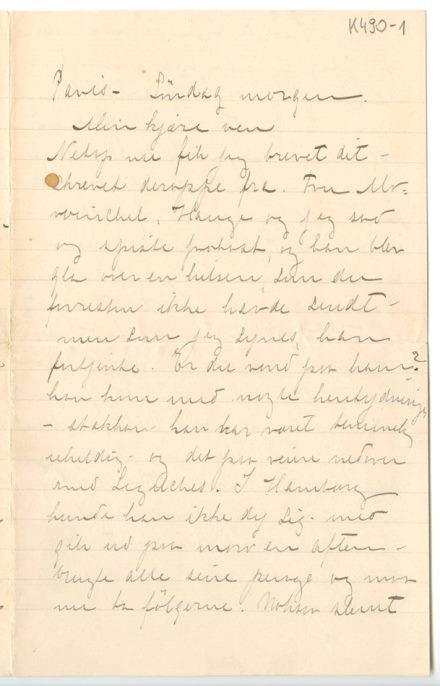 K490-1
Paris - Söndag morgen.
Min kjære ven
Netop nu fik jeg brevet dit -
skrevet deroppe fra. Fru Mo=
Hauge og jeg sad
og spiste frokost, og han blev
gla over en hilsen, som du
forresten ikke havde sendt -
men som jeg synes, han
fortjente. Er du vond paa ham?
han kom med nogle hentydninger
- stakkar han har været temmelig
uheldig - og det paa veien nedover
med I Hamburg
kunde han ikke dy sig. med
gik ud paa moro en aften -
brugte alle sine penge og maa
nu ta fölgerne. slemt